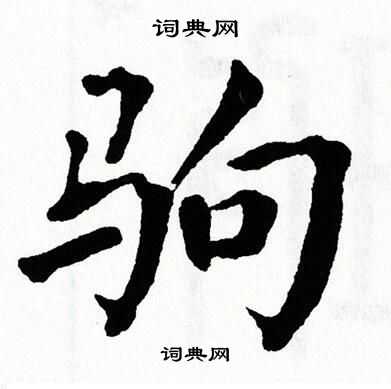 词典网
驹
词典网